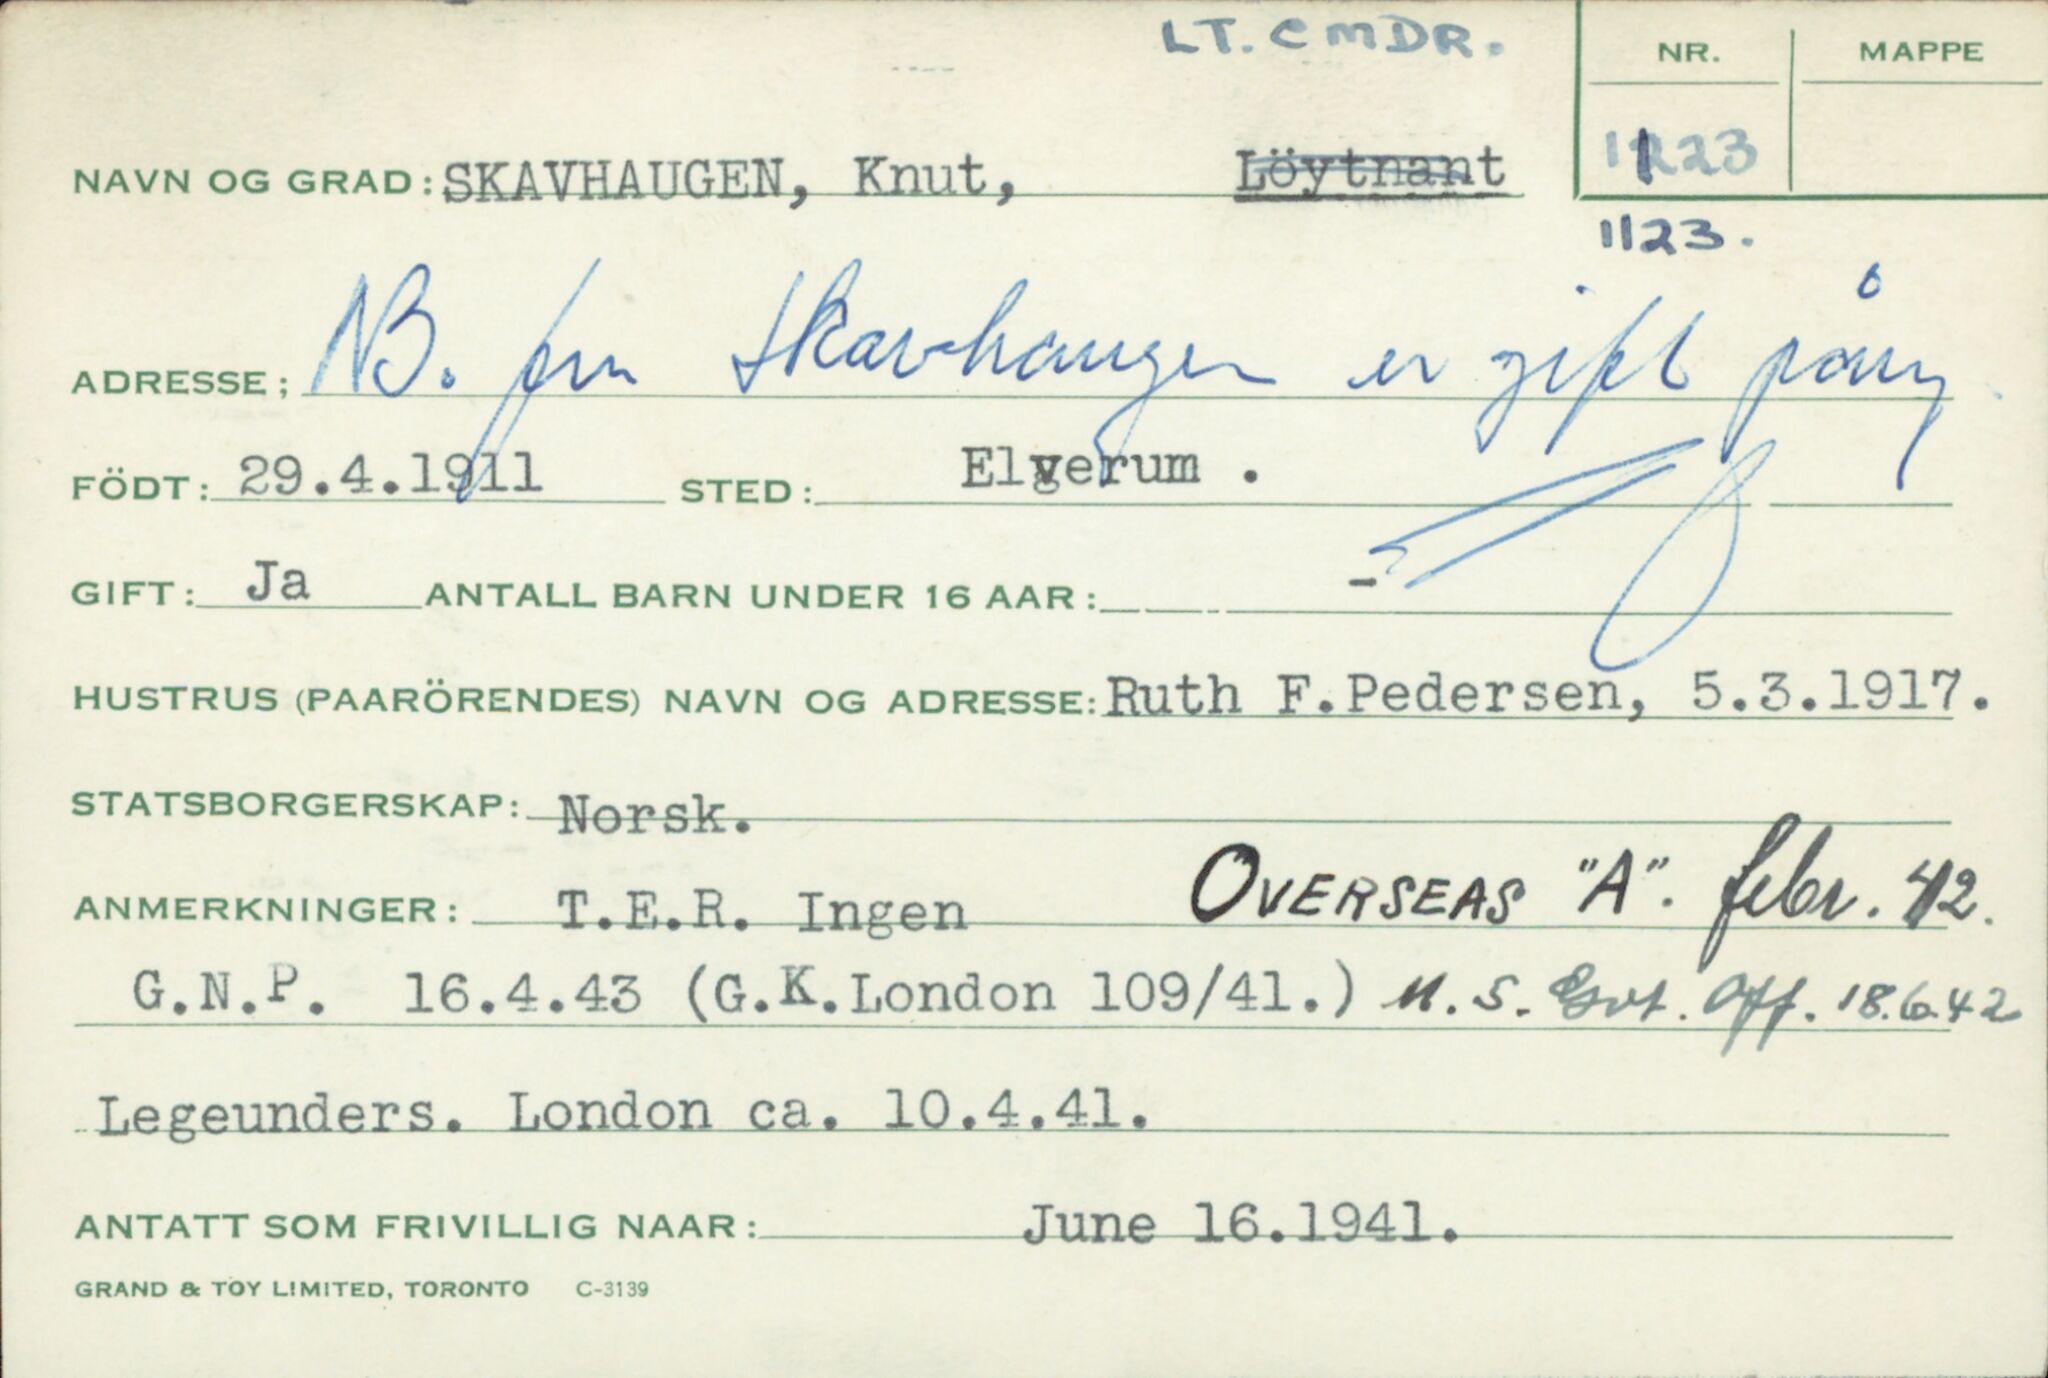 LT. CMDR.
NR. MAPPE
1123
NAVN OG GRAD: SKAVHAUGEN, Knut, Löytnant
1123.
ADRESSE; NB. fru Skavhaugen er gift påny
FÖDT: 29.4.1911 STED: Elverum .
GIFT: Ja ANTALL BARN UNDER 16 AAR: -
HUSTRUS (PAARÖRENDES) NAVN OG ADRESSE: Ruth F. Pedersen, 5.3.1917.
STATSBORGERSKAP: Norsk.
ANMERKNINGER: T.E.R. Ingen OVERSEAS "A". febr. 42.
G.N.P. 16.4.43 (G.K.London 109/41.) Off. 18.6.42
Legeunders. London ca. 10.4.41.
ANTATT SOM FRIVILLIG NAAR: June 16.1941.
GRAND & TOY LIMITED, TORONTO C-3139